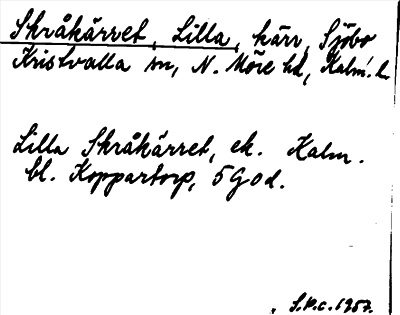 Skråkärret, Lilla, kärr, Sjöbo
Kristvalla sn, N. Möre hd, Kalm. l.
Lilla Skråkärret, ek. Kalm.
bl. Koppartorp, 5G0d.
S.P.c. 1957.